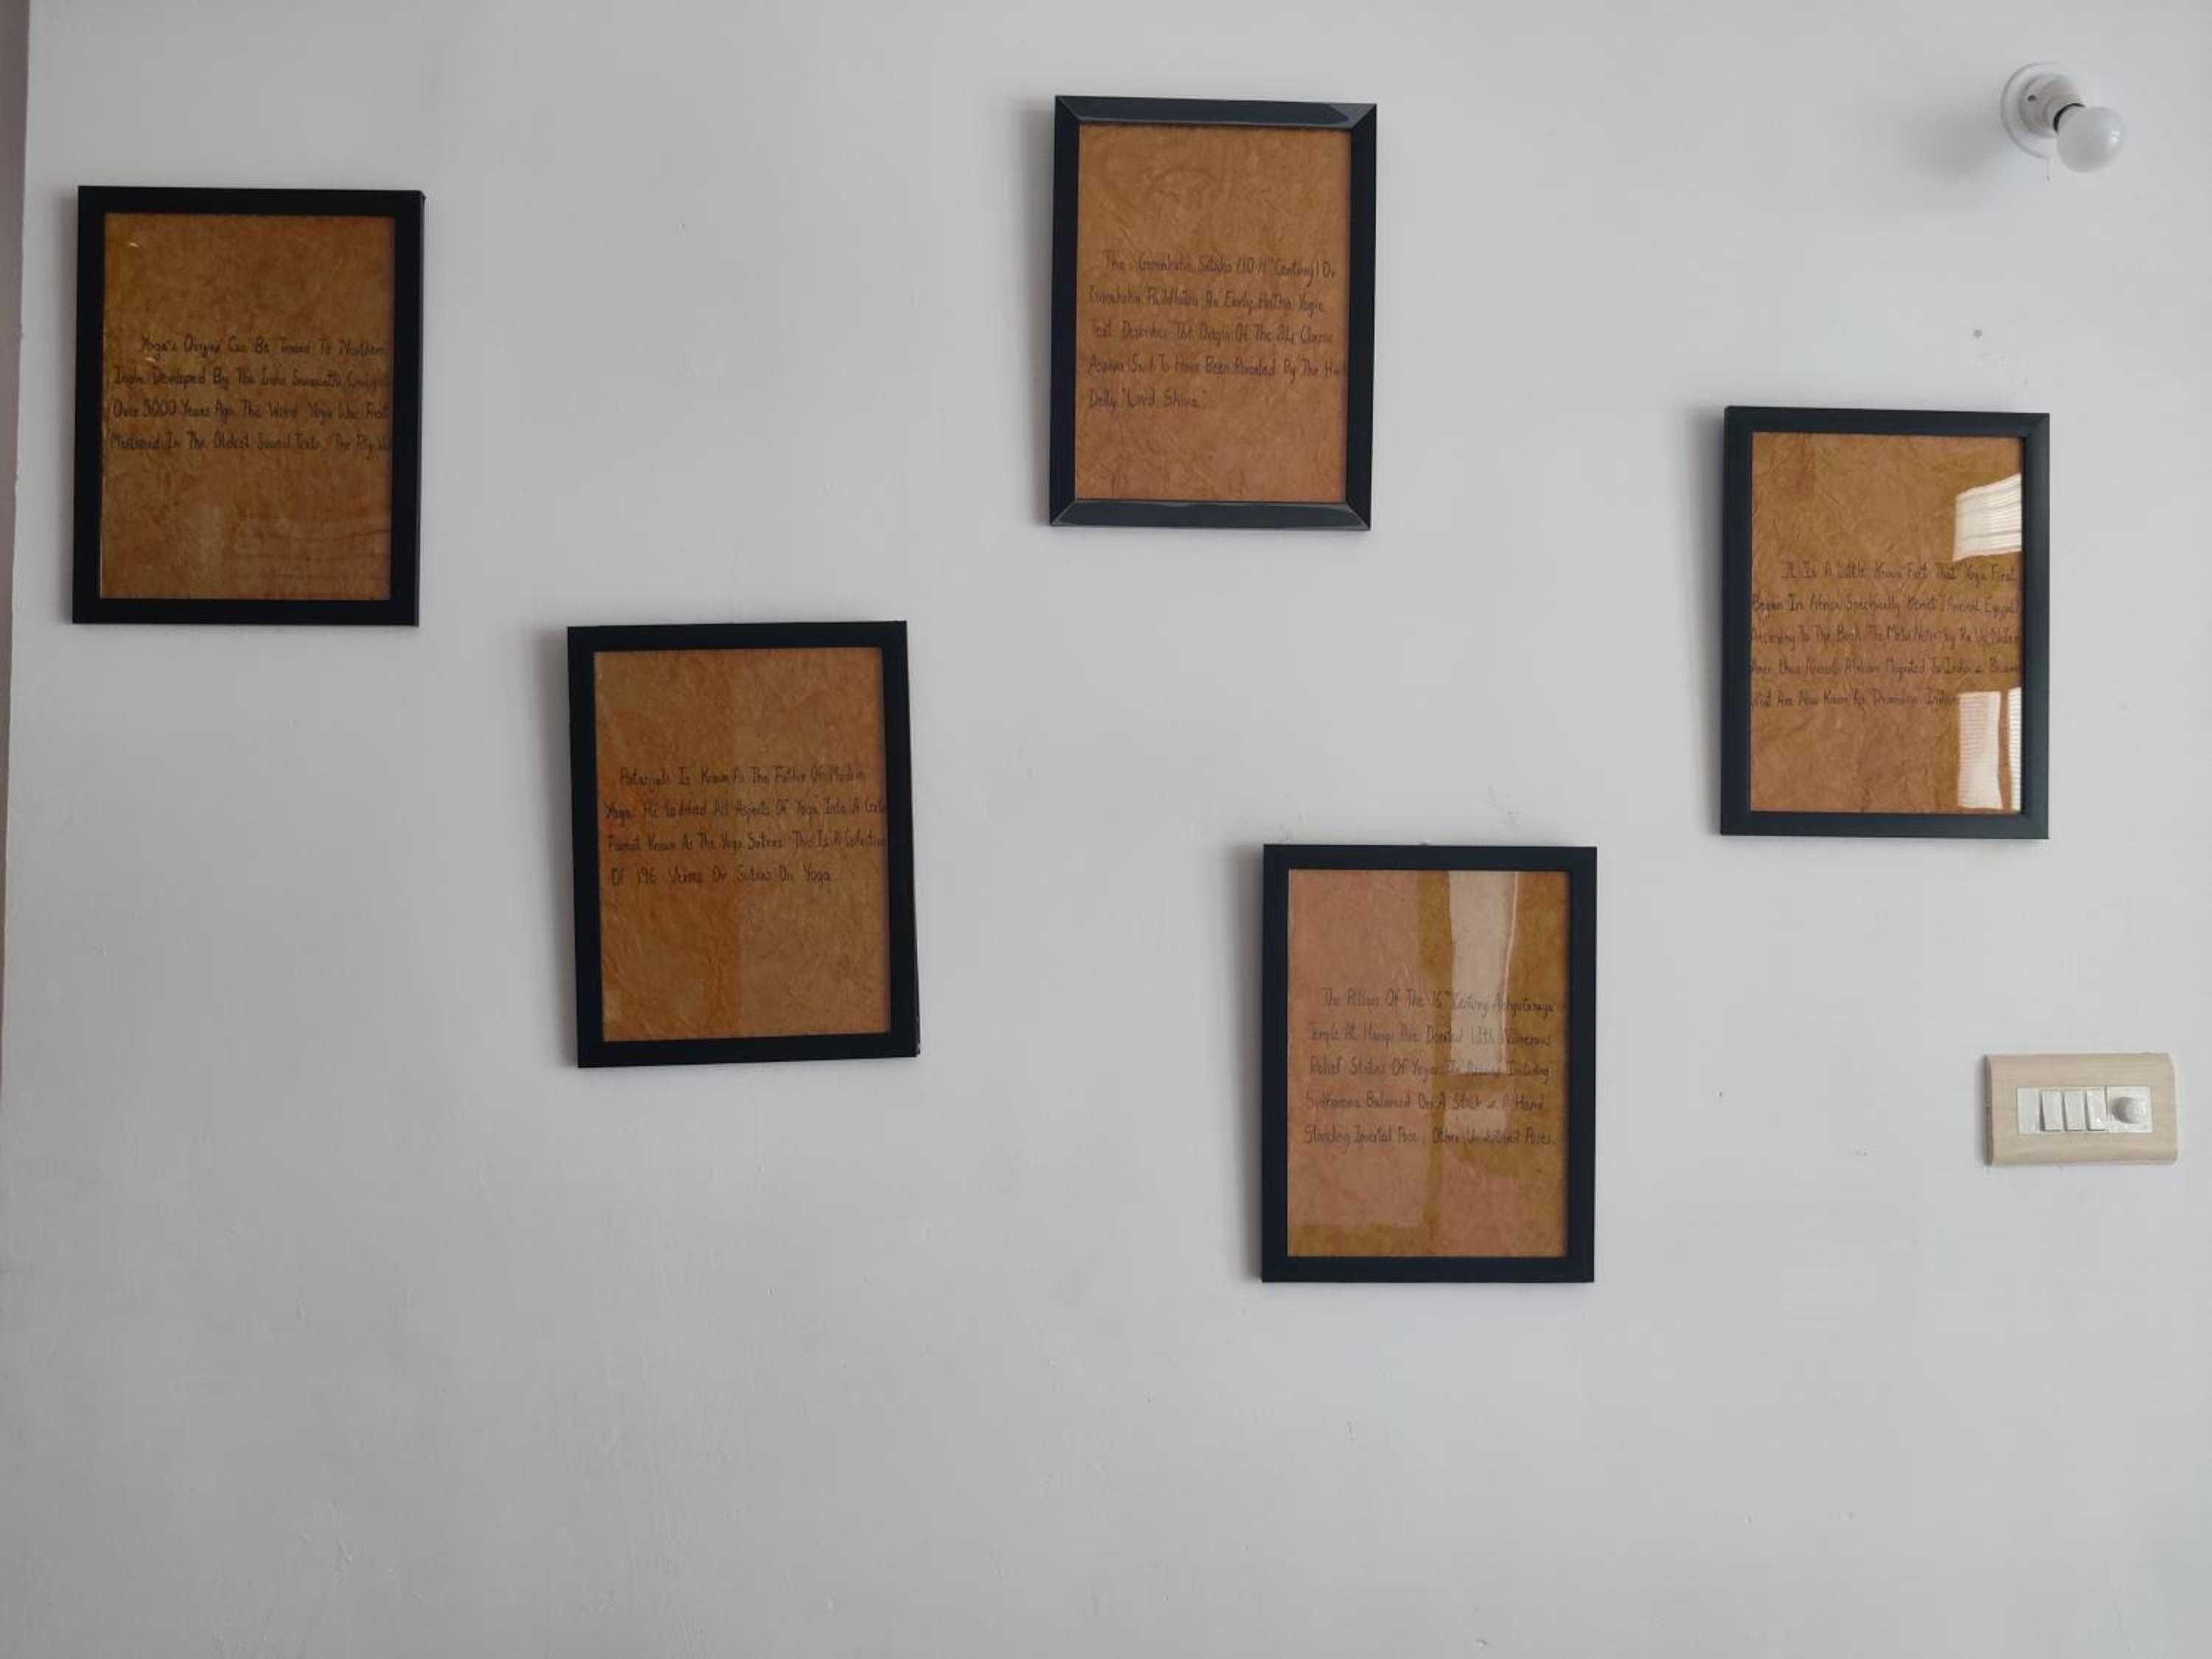 Yoga's Origins Can Be Traced To Northern
India Developed By The Indus
Over 5000 Years Ago. The Word Yoga Was First
Mentioned In The Oldest Sacred Texts, The Rig
Patanjali Is Known As The Father Of Modern
Yoga. He Codified All Aspects Of Yoga Into A
Format Known As The Yoga Sutras. This Is A
Of 196 Verses Or Sutras On Yoga
The Goraksha (10-11th Century) Or
Goraksha An Early Hatha Yogic
Text Describes The Origin Of The 84 Classic
Asanas To Have Been Revealed By The
Deity "Lord Shiva"
The Pillars Of The 16th Century Achyutaraya
Temple At Hampi Are With Numerous
Relief Of Yogis In Including
Balanced On A Stick & A Hand
Standing Inverted Pose, Other Poses.
It Is A Little Known Fact That Yoga First
Began In Africa Specifically Kemet (Ancient Egypt)
According To The Book, The by
Africans Migrated To India &
What Are Now Known As Dravidian